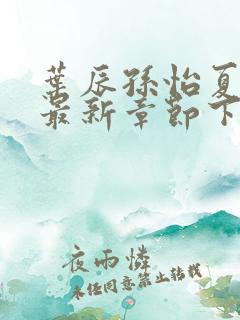 葉辰孫怡夏
最新章節下
夜雨憐
未經同意禁止轉載